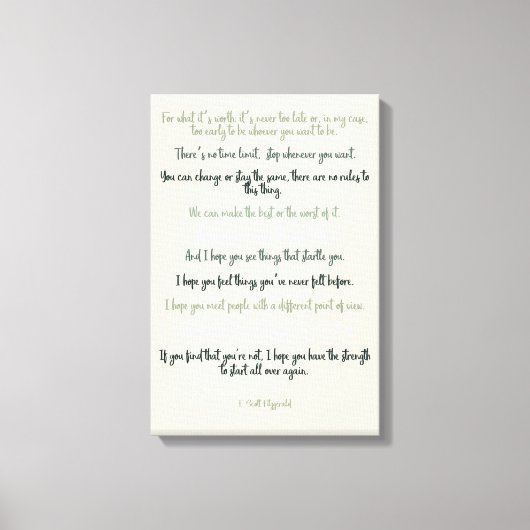 For what it's worth: it's never too late or, in my case,
too early to be whoever you want to be.
There's no time limit, stop whenever you want.
You can change or stay the same, there are no rules to
this thing.
We can make the best or the worst of it.
And I hope you see things that startle you.
I hope you feel things you've never felt before.
I hope you meet people with a different point of view.
If you find that you're not, I hope you have the strength
to start all over again.
F. Scott Fitzgerald